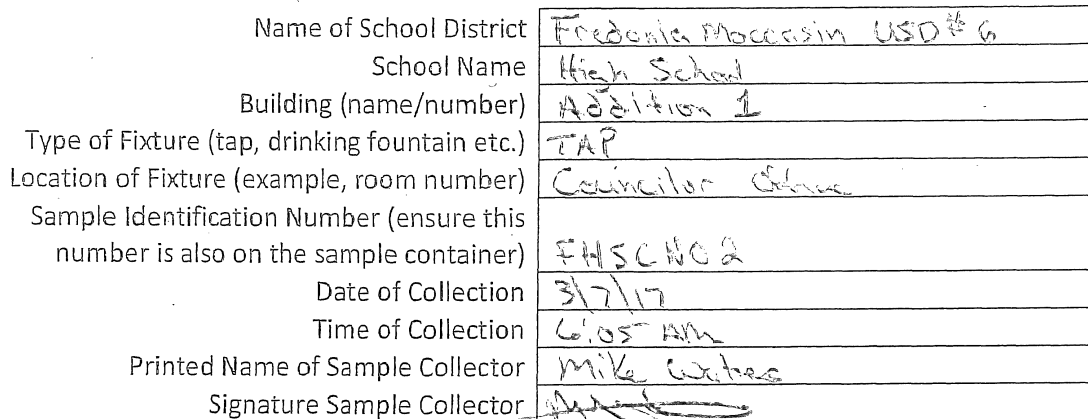 Name of School District Fredonia Moccasin USD #6
School Name High School
Building (name/number) Addition 1
Type of Fixture (tap, drinking fountain etc.) TAP
Location of Fixture (example, room number) Councilor Office
Sample Identification Number (ensure this
number is also on the sample container) FHSCNO2
Date of Collection 3/7/17
Time of Collection 6:05 AM
Printed Name of Sample Collector Mike
Signature Sample Collector